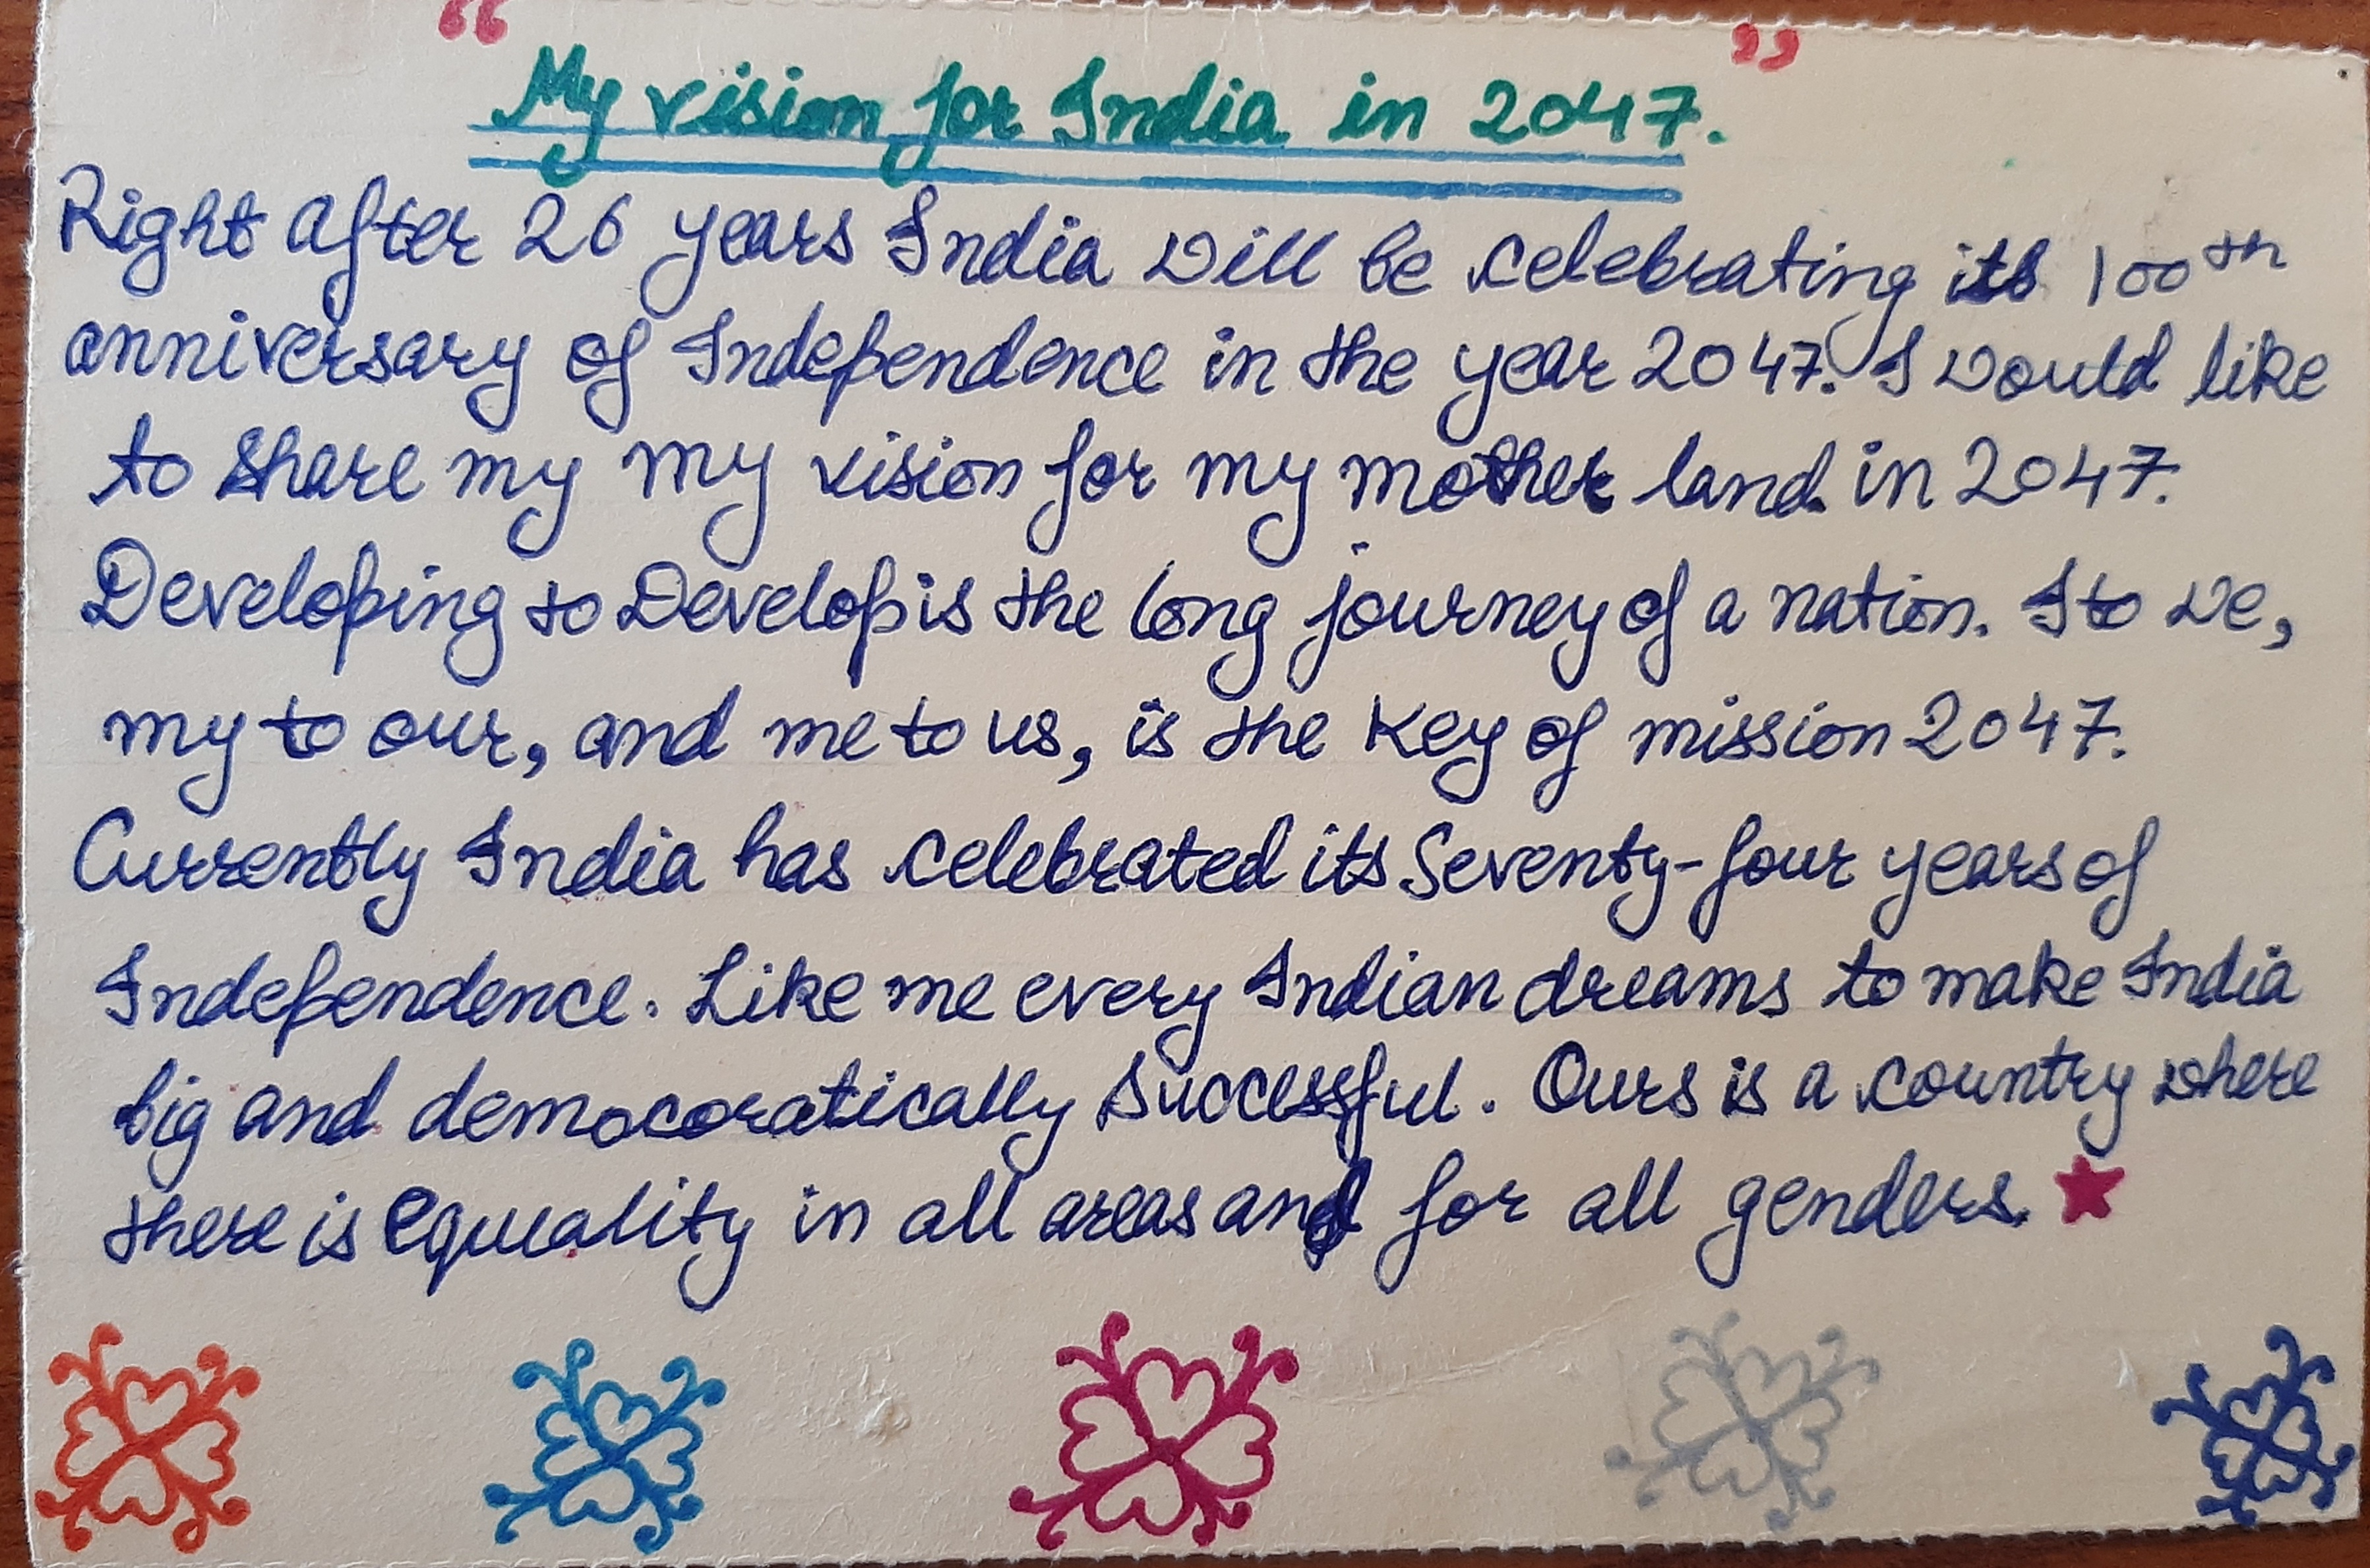 “ ”
My vision for India in 2047.
Right after 26 years India will be celebrating its 100th
anniversary of Independence in the year 2047. I would like
to share my my vision for my mother land in 2047.
Developing to Develop is the long journey of a nation. I to we,
my to our, and me to us, is the key of mission 2047.
Currently India has celebrated its Seventy-four years of
Independence. Like me every Indian dreams to make India
big and democoratically successful. Ours is a country where
there is equality in all areas and for all genders.